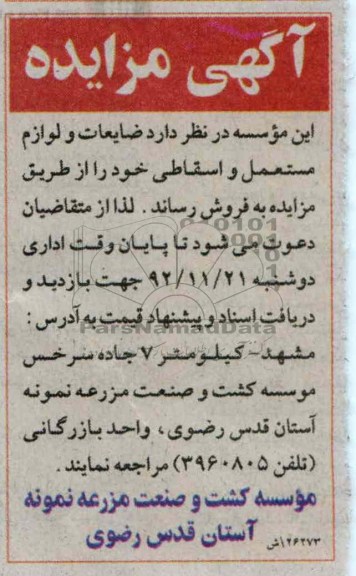 آگهی مزایده
این مؤسسه در نظر دارد ضایعات و لوازم
مستعمل و اسقاطی خود را از طریق
مزایده به فروش رساند . لذا از متقاضیان
دعوت می شود تا پایان وقت اداری
دوشنبه ۹۲/۱۱/۲۱ جهت بازدید و
دریافت اسناد و پیشنهاد قیمت به آدرس :
مشهد - کیلومتر ۷ جاده سرخس
موسسه کشت و صنعت مزرعه نمونه
آستان قدس رضوی ، واحد بازرگانی
(تلفن ۳۹۶۰۸۰۵) مراجعه نمایند .
مؤسسه کشت و صنعت مزرعه نمونه
آستان قدس رضوی
۱۲۶۲۷۳ش
ParsNamadData